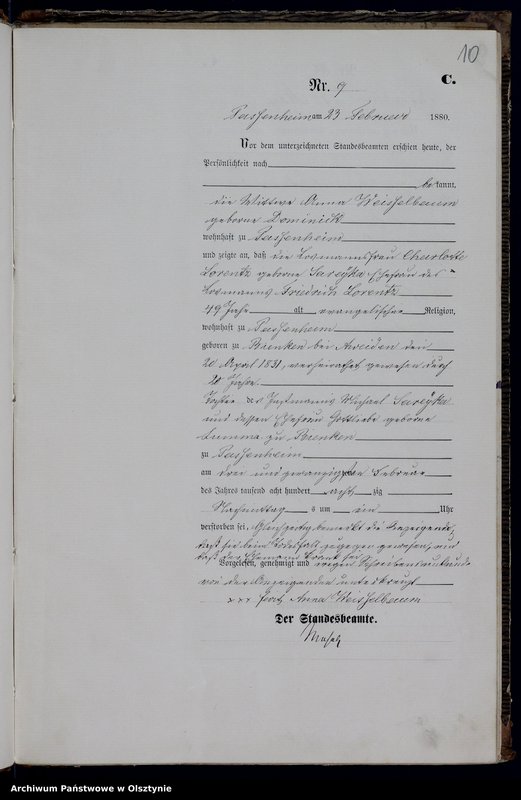 10
C.
Nr. 9
Passenheim am 23 Februar 1880.
Vor dem unterzeichneten Standesbeamten erschien heute, der
Persönlichkeit nach
bekannt,
die Wittwe Anna Weisselbaum
geborne Dominick
wohnhaft zu Passenheim
und zeigte an, daß die Losmannsfrau Charlotte
Lorentz geborne Sareyka Ehefrau des
Losmanns Friedrich Lorentz
49 Jahre alt evangelischer Religion,
wohnhaft zu Passenheim
geboren zu bei den
20 April 1831, verheirathet gewesen durch
20 Jahre.
Tochter des Michael Sareyka
und dessen Ehefrau Gottliebe geborne
Lumma zu
zu Passenheim
am drei und zwanzigsten Februar
des Jahres tausend acht hundert acht zig
Nachmittags um ein Uhr
verstorben sei. Gleichzeitig bemerkt die Anzeigende,
daß sie beim Todesfall zugegen gewesen, und
daß der Ehemann krank sei
Vorgelesen, genehmigt und wegen Schreibensunkunde
von der Anzeigenden unterkreuzt
xxx Anna Weisselbaum
Der Standesbeamte.
Archiwum Państwowe w Olsztynie